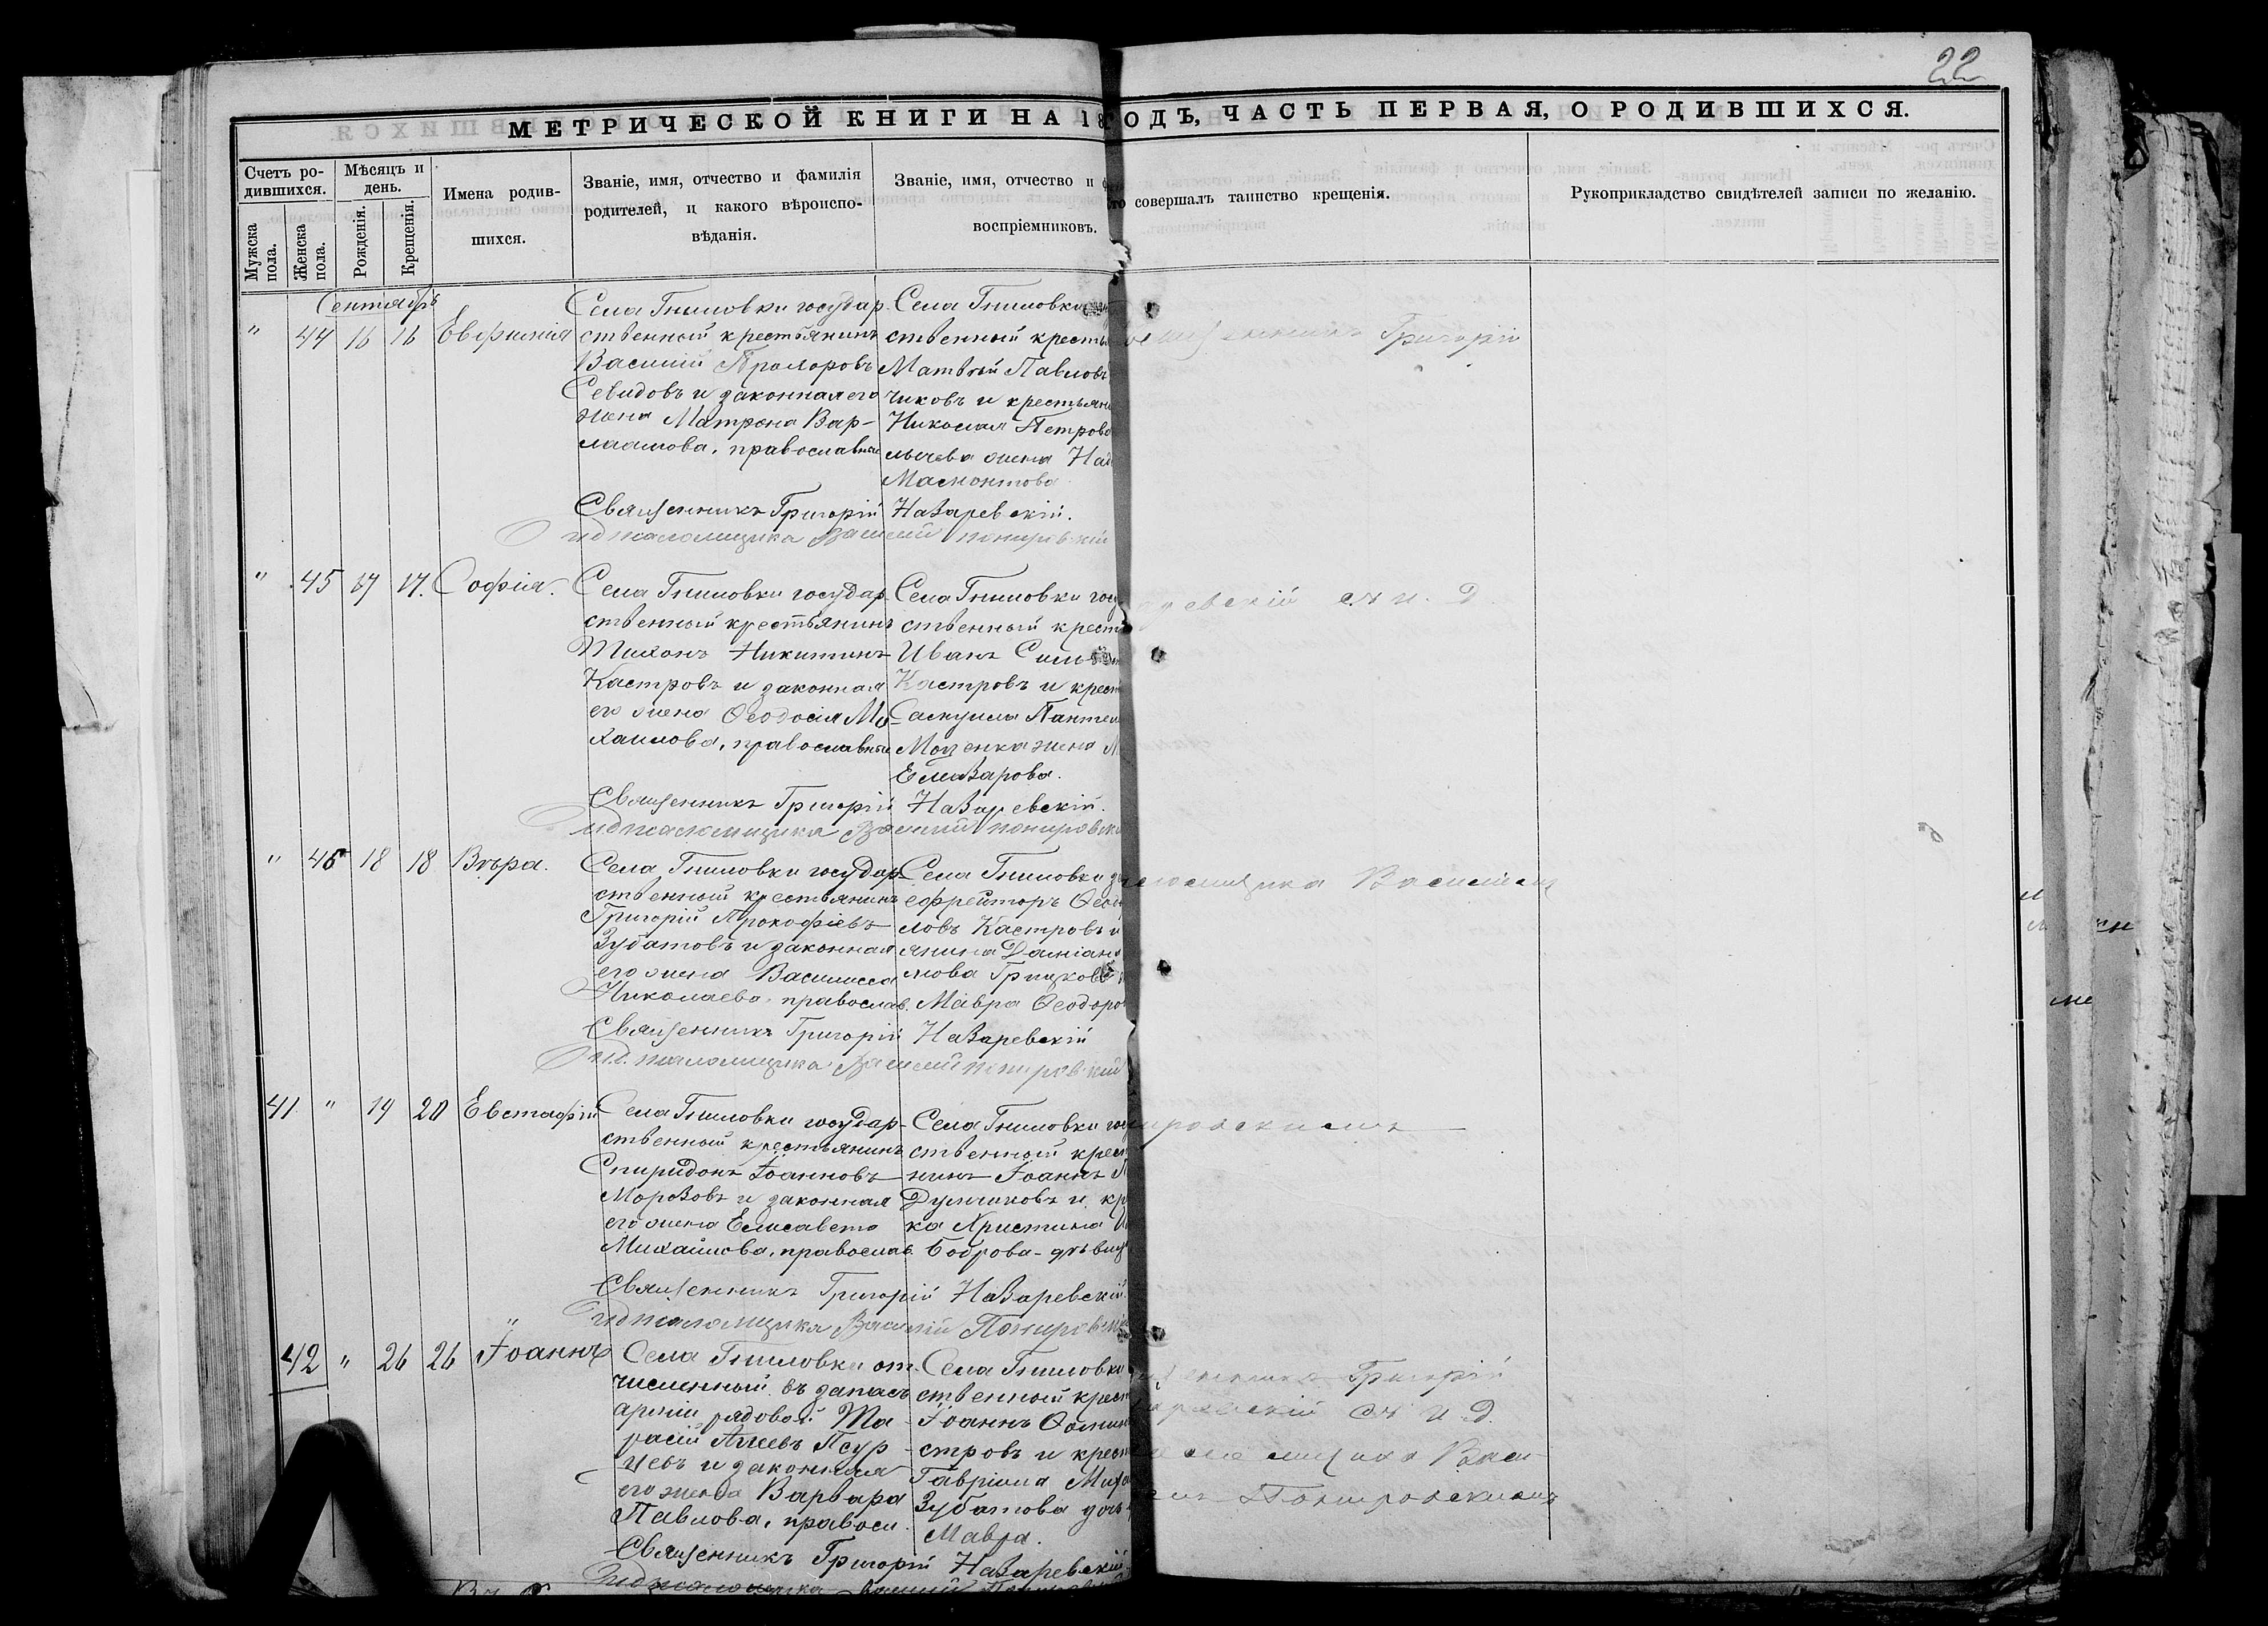 22
МЕТРИЧЕСКОЙ КНИГИ НА 18 ГОДЪ, ЧАСТЬ ПЕРВАЯ, О РОДИВШИХСЯ.
Счетъ ро-
дившихся.
Мужска
пола.
Женска
пола.
Мѣсяцъ и
день.
Рожденія.
Крещенія.
Имена родив-
шихся.
Званіе, имя, отчество и фамилія
родителей, и какого вѣроиспо-
вѣданія.
Званіе, имя, отчество и
воспріемниковъ.
совершалъ таинство крещенія.
Рукоприкладство свидѣтелей записи по желанію.
Сентябрь
" 44 16 16 Евфимія
Села Гниловки государ-
ственный крестьянинъ
Василий
Севидовъ и законная его
жена Матрона Вар-
лаамова, православные
Села Гниловки
ственный кресть
Матвѣй Павловъ
чиковъ и крестьян
Николая Петрова
жена Над
Мамонтова
Священникъ Григорій
Священникъ Григорій Назаревскій.
и д псаломщика Василій Понировскій
" 45 17 17. Софія.
Села Гниловки государ-
ственный крестьянинъ
Тихонъ Никитинъ
Кастровъ и законная
его жена Ѳеодосія Ми-
хаилова, православные
Села Гниловки госу
ственный кресть
Иванъ
Кастровъ и крест
Самуила Пантел
жена М
Елеазарова.
ревскій съ и. д.
Священникъ Григорій Назаревскій.
и д псаломщика Василий Понировски
" 46 18 18 Вѣра.
Села Гниловки государ-
ственный крестьянинъ
Григорій Прокофіевъ
Зубатовъ и законная
его жена Василисса
Николаева, православ.
Села Гниловки
ефрейторъ Ѳеод
ловъ Кастровъ и
янина Даміана
мова
Мавра Ѳеодоро
ломщика Василіем
Священникъ Григорій Назаревскій
и.д. псаломщика Василий Понировский
41 " 19 20 Евстафій
Села Гниловки государ-
ственный крестьянинъ
Спиридонъ Іоанновъ
Морозовъ и законная
его жена Елисавета
Михайлова, православ.
Села Гниловки госу
ственный крест
нинъ Іоаннъ П
и кр
ка Христина
Боброва - дѣвиц
нировскимъ
Священникъ Григорій Назаревскій.
и д псаломщика Василій Понировскі
42 " 26 26 Іоаннъ
Села Гниловки от-
численный въ запасъ
арміи рядовой Та-
расій
и законная
его жена Варвара
Павлова, правосл.
Села Гниловки
ственный крест
Іоаннъ
стровъ и крест
Гавріила Миха
Зубатова дочь
Мавра.
щенникъ Григорій
аревскій съ и. д.
ломщика Васи-
ем Понировскимъ
Священникъ Григорій Назаревскій
и д псаломщика Василий